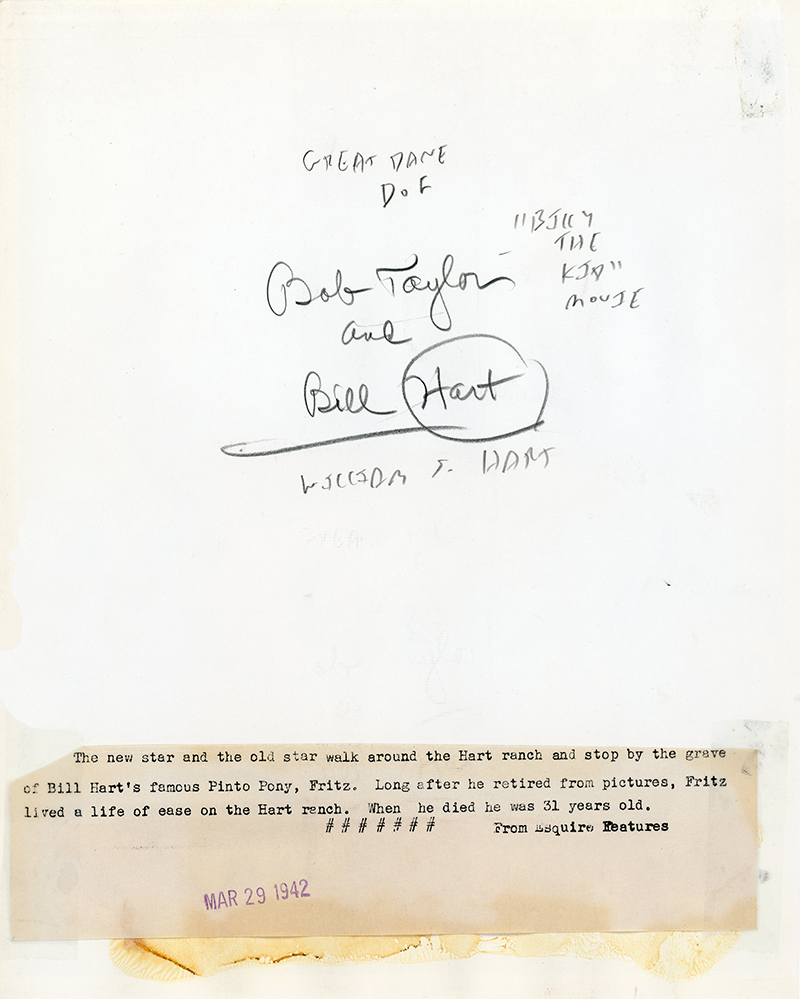 GREAT DANE
DOF
"BILLY
THE
KID"
MOVIE
Bob Taylor
and
Bill Hart
WILLIAM S. HART
The new star and the old star walk around the Hart ranch and stop by the grave
of Bill Hart's famous Pinto Pony, Fritz. Long after he retired from pictures, Fritz
lived a life of ease on the Hart ranch. When he died he was 31 years old.
# # # # # # # From Esquire Features
MAR 29 1942